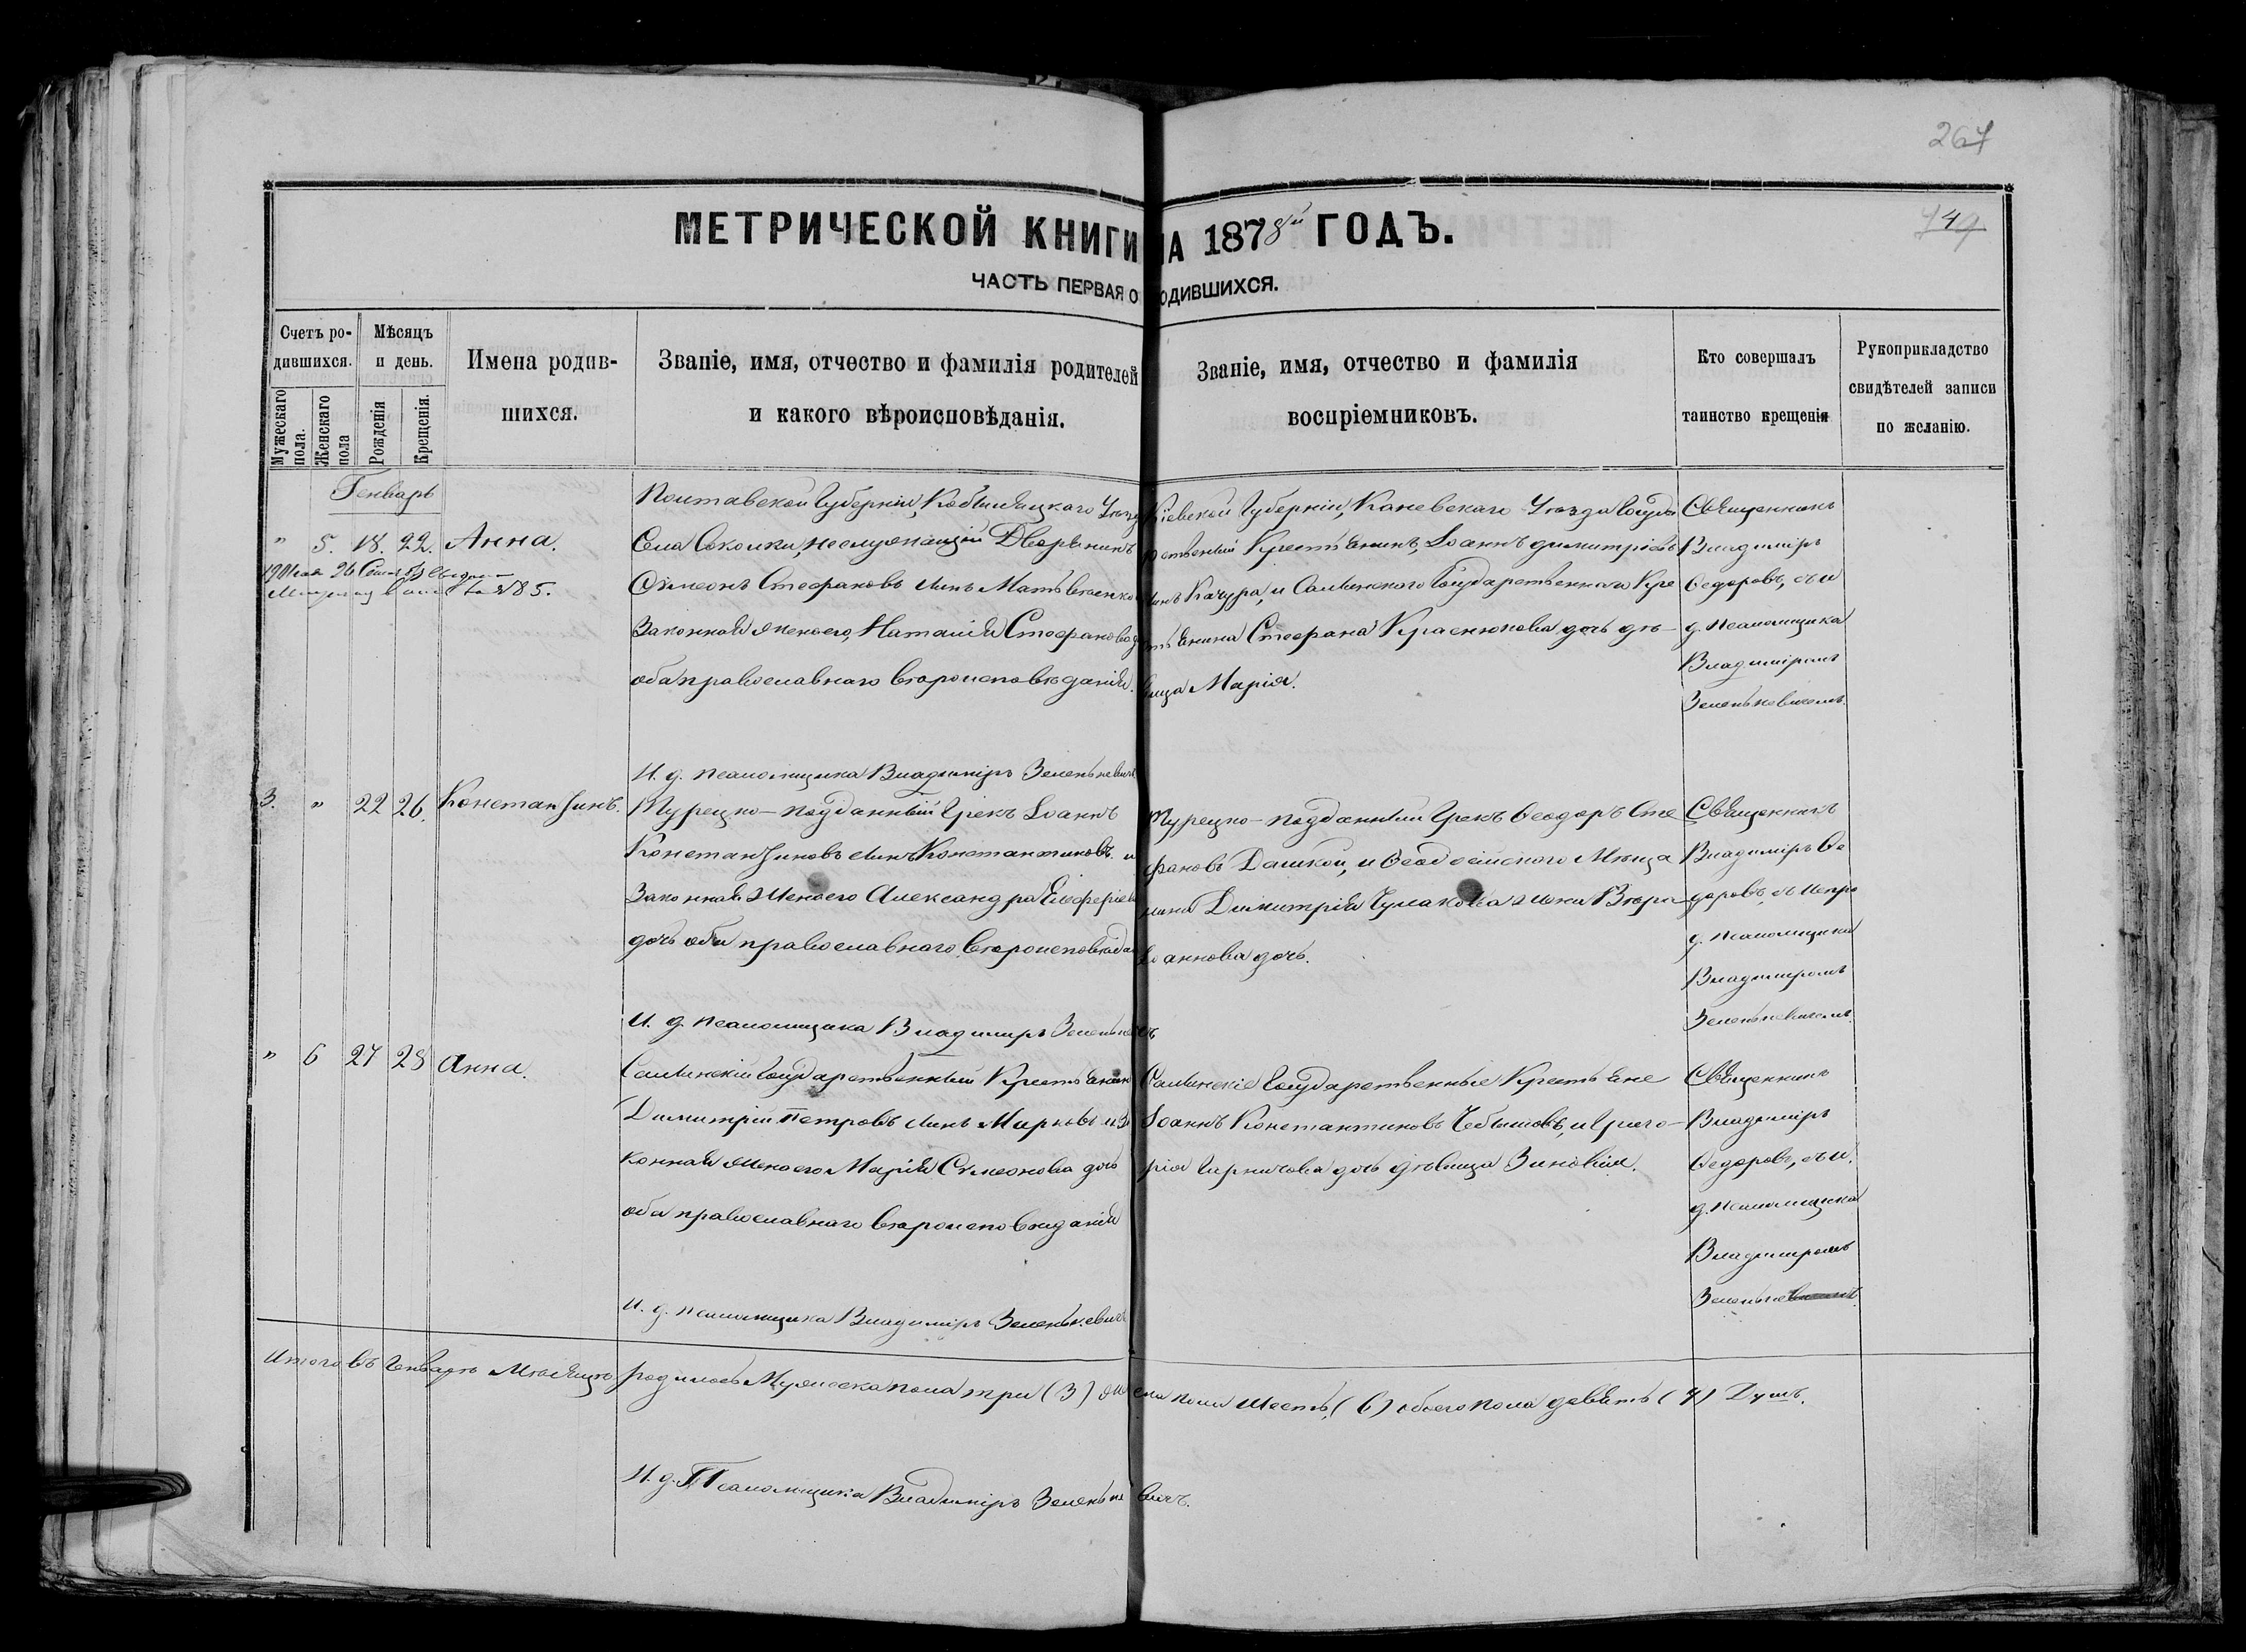 267
МЕТРИЧЕСКОЙ КНИГИ НА 1878й ГОДЪ.
ЧАСТЬ ПЕРВАЯ О РОДИВШИХСЯ.
Счетъ родившихся.
Мужескаго пола.
Женскаго пола
Мѣсяцъ и день.
Рожденія
Крещенія.
Имена родив-
шихся.
Званіе, имя, отчество и фамилія родителей
и какого вѣроисповѣданія.
Званіе, имя, отчество и фамилія
воспріемниковъ.
Кто совершалъ
таинство крещенія
Рукоприкладство
свидѣтелей записи
по желанію.
Генварь
" 5. 18. 22. Анна.
Полтавской Губерніи, Кобыляцкаго Уѣзд
Села Соколки, неслужащій Дворянинъ
Сѵмеонъ Стефановъ сынъ Матвѣенко
Законная жена его, Наталія Стефанова д
оба православнаго вѣроисповѣданія.
И. д. псаломщика Владиміръ Зеленькевичъ
Кіевской Губерніи, Каневскаго Уѣзда Госуда
рственный Крестьянинъ, Іоаннъ Димитріевъ
сынъ Качура, и Салынскаго Государственнаго Кре
стьянина Стефана Краснюкова дочь дѣ-
вица Марія.
Священникъ
Владиміръ
Ѳедоровъ, съ и
д. псаломщика
Владиміромъ
Зеленькевичемъ.
3. " 22 26. Константинъ.
Турецко-подданный Грекъ Іоаннъ
Константиновъ сынъ Константиновъ и
Законная жена его Александра Елеферіева
дочь оба православнаго вѣроисповѣдан
И. д. псаломщика Владиміръ Зеленькевичъ
Турецко-подданный Грекъ Ѳеодоръ Сте
фановъ Дашкой, и Ѳеодосійскаго Мѣща
нина Димитрія Чумакова жена Вѣра
Іоаннова дочь.
Священникъ
Владиміръ Ѳе
доровъ, съ испр
д. псаломщика
Владиміромъ
Зеленькевичемъ.
" 6 27 28 Анна.
Салынскій Государственный Крестьянин
Димитрій Петровъ сынъ Марковъ и За
конная жена его Марія Сѵмеонова дочь
оба православнаго вѣроисповѣданія
И. д. псаломщика Владиміръ Зеленькевичъ
Салынскіе Государственные Крестьяне
Іоаннъ Константиновъ Чебышовъ, и Григо-
рія Гарничова дочь дѣвица Зиновія.
Священникъ
Владиміръ
Ѳедоровъ, съ и.
д. псаломщика
Владиміромъ
Зеленькевичемъ.
Итого въ Генварѣ Мѣсяцѣ родилось Мужеска пола три (3) женска пола шесть, (6) обоего пола девять (9) Душъ.
И. д. Псаломщика Владиміръ Зеленькевичъ.